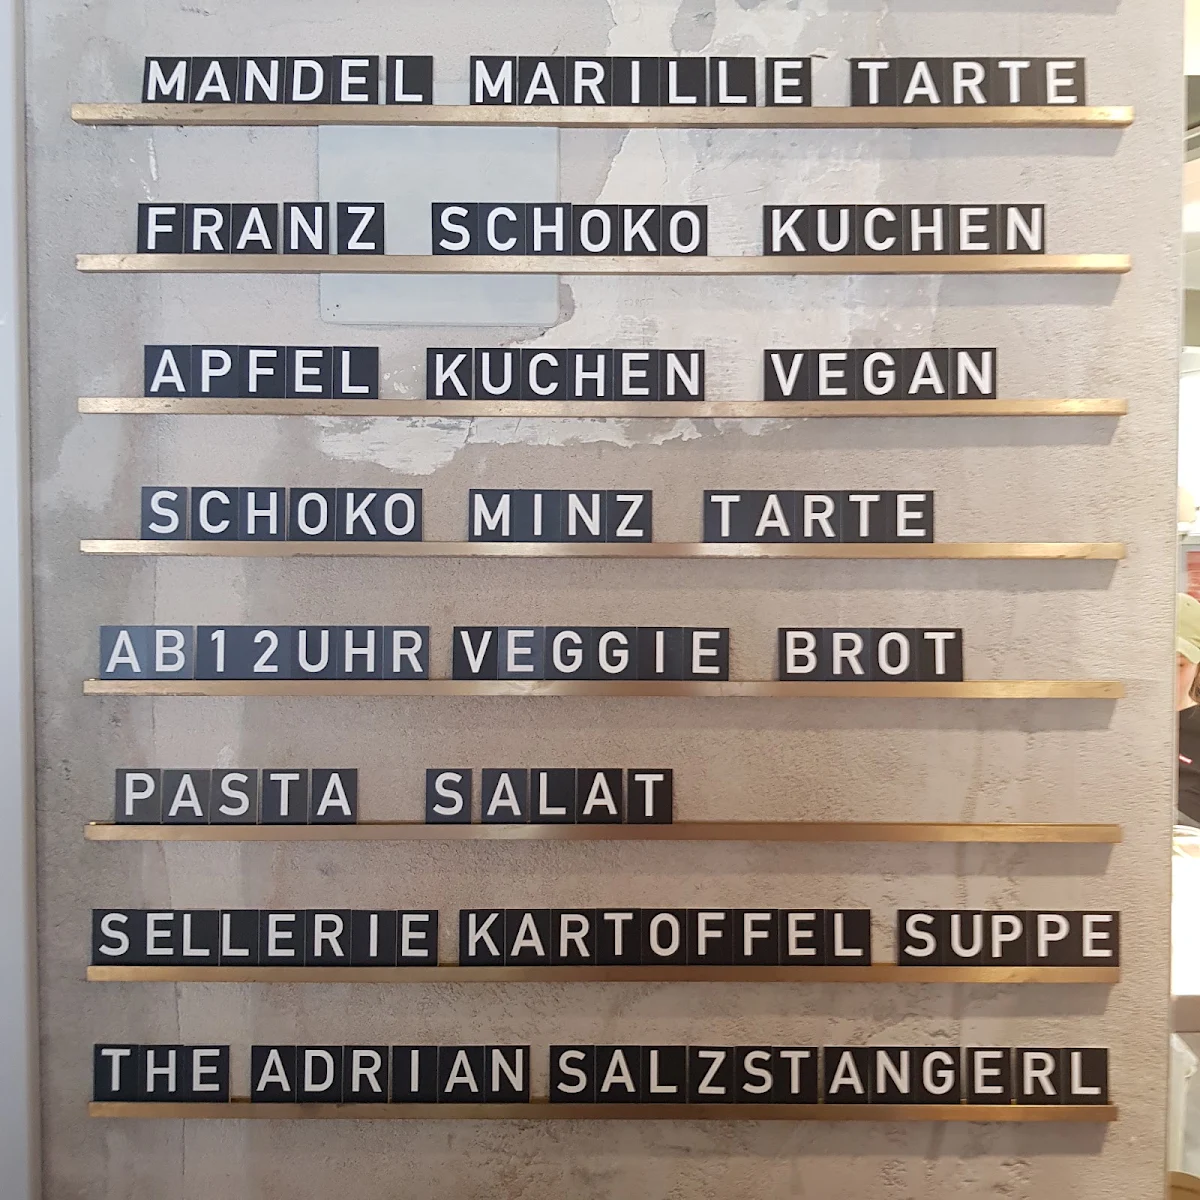 MANDEL MARILLE TARTE
FRANZ SCHOKO KUCHEN
APFEL KUCHEN VEGAN
SCHOKO MINZ TARTE
AB12UHR VEGGIE BROT
PASTA SALAT
SELLERIE KARTOFFEL SUPPE
THE ADRIAN SALZSTANGERL